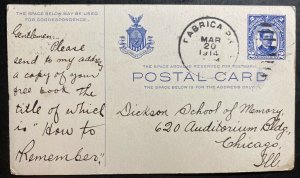 THE SPACE BELOW MAY BE USED
FOR CORRESPONDENCE.
Gentlemen:
Please
send to my address
a copy of your
free book the
title of which
is "How to
Remember".
FABRICA, P.I.
MAR
20
1914
THE SPACE ABOVE RESERVED FOR POSTMARK
POSTAL CARD
THE SPACE BELOW IS FOR THE ADDRESS ONLY.
Dickson School of Memory,
620 Auditorium Bldg,
Chicago,
Ill.